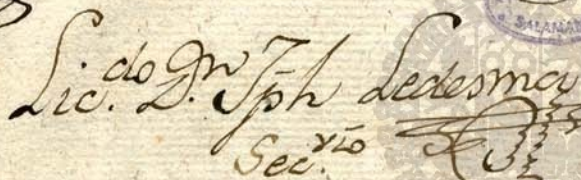 SALAMAN
Lic.do Dn Jph Ledesma
Sec.rio